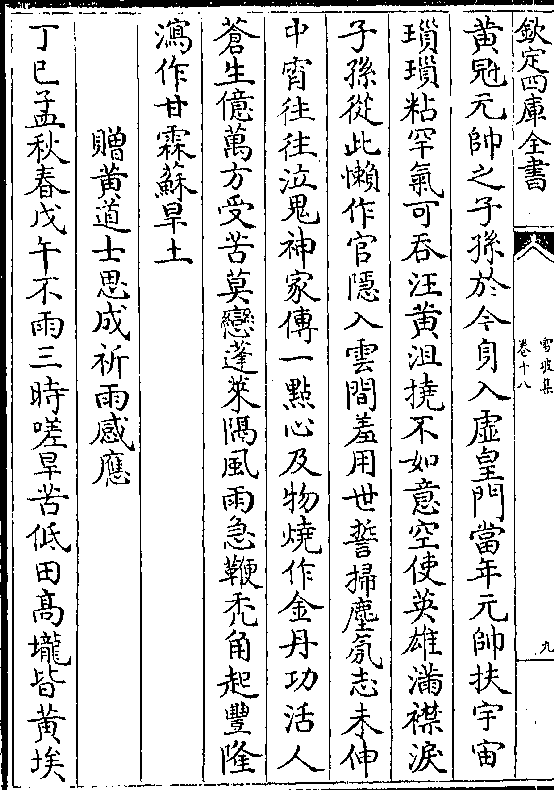 欽定四庫全書
雪坡集
卷十八
九
黄冠元帥之子孫於今身入虛皇門當年元帥扶宇宙
瑣瑣粘罕氣可吞汪黄沮撓不如意空使英雄滿襟淚
子孫從此懶作官隱入雲間羞用世誓掃塵氛志未伸
中宵往往泣鬼神家傳一點心及物燒作金丹功活人
蒼生億萬方受苦莫戀蓬萊隔風雨急鞭禿角起豐隆
瀉作甘霖蘇旱土
贈黄道士思成祈雨感應
丁巳孟秋春戊午不雨三時嗟旱苦低田髙壠皆黄埃